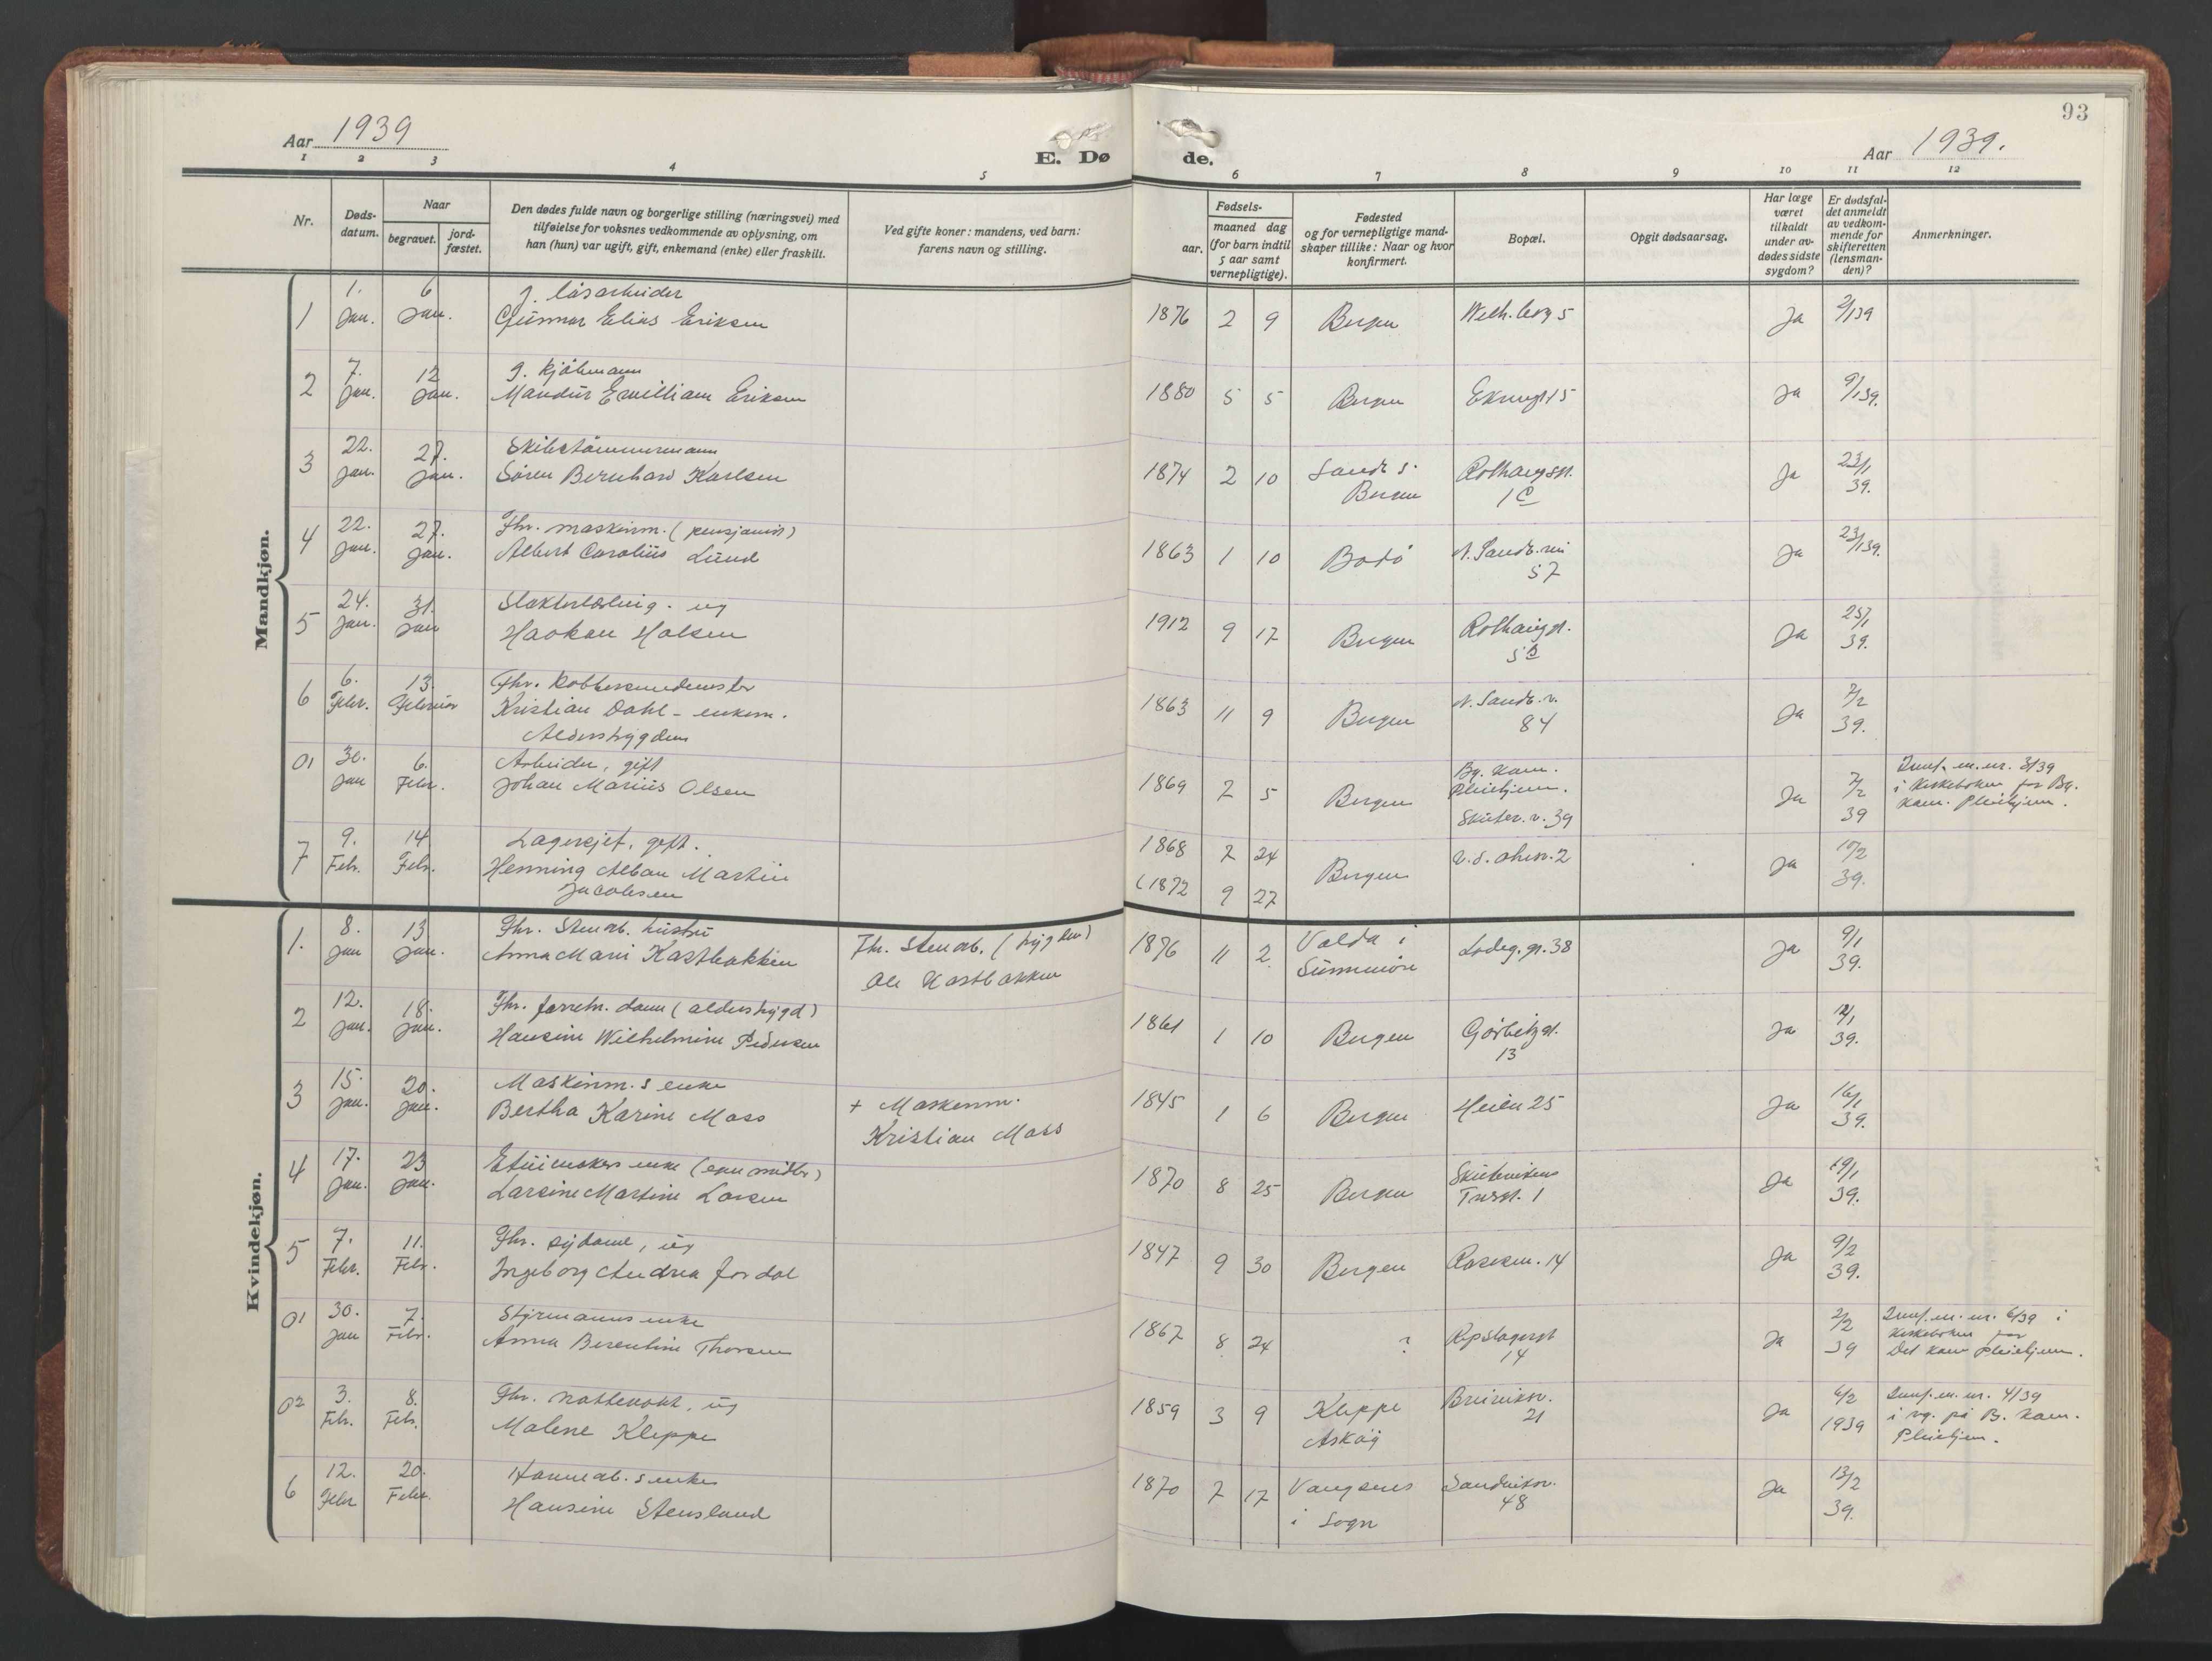 93
Aar 1939
E. Døde.
Aar 1939.
1 2 3 4 5 6 7 8 9 10 11 12
Nr.
Døds-
datum.
Naar
begravet.
jord-
fæstet.
Den dødes fulde navn og borgerlige stilling (næringsvei) med
tilføielse for voksnes vedkommende av oplysning, om
han (hun) var ugift, gift, enkemand (enke) eller fraskilt.
Ved gifte koner: mandens, ved barn:
farens navn og stilling.
Fødsels-
aar.
maaned dag
(for barn indtil
5 aar samt
vernepligtige).
Fødested
og for vernepligtige mand-
skaper tillike: Naar og hvor
konfirmert.
Bopæl.
Opgit dødsaarsag.
Har læge
været
tilkaldt
under av-
dødes sidste
sygdom?
Er dødsfal-
det anmeldt
av vedkom-
mende for
skifteretten
(lensman-
den)?
Anmerkninger.
Mandkjøn.
1 1. Jan. 6 Jan.
g. låsarbeider
Gunnar Elias Eriksen
1876 2 9 Bergen 5 Ja 2/1 39
2 7. Jan. 12 Jan.
g. Kjölmann
Mandus Emilliam Eriksen
1880 5 5 Bergen 15 Ja 9/1 39.
3 22. Jan. 27. Jan.
Skibstömmermann
Sören Bernhard Karlsen
1874 2 10 Sandv. Bergen Rothaugsgt. 1 C Ja 23/1 39.
4 22. Jan. 27. Jan.
Fhr. maskinm. (pensjonist)
Albert Carolius Lund
1863 1 10 Bodö N. Sandv.vei 57 Ja 23/1 39.
5 24. Jan. 31. Jan
Slakterlærling. ug
Haakon Halsen
1912 9 17 Bergen Rothaugsgt. 5 B Ja 25/1 39.
6 6. Febr. 13. Februar
Fhr. Kobbersmedmester
Kristian Dahl - enkem.
Alderstrygden
1863 11 9 Bergen N. Sandv. v. 84 Ja 7/2 39.
01 30. Jan 6. Febr.
Arbeider, gift
Johan Marius Olsen
1869 2 5 Bergen Bg. Kom. Pleiehjem. Skuter. v. 39 Ja 2/2 39
Innf. m. nr. 3/39
i Kirkeboken for Bg.
Kom. Pleiehjem.
7 9. Febr. 14 Febr.
Lagersjef, gift.
Henning Alban Martin
Jacobsen
1868 2 24
(1872 9 27
Bergen 2 Ja 10/2 39.
Kvindekjøn.
1. 8. Jan 13 Jan.
Fhr. Stenarb. hustru
Anna Marie Kastbakken
Fh. Stenarb. (trygden)
Ole Kastbakken
1876 11 2 Volda i Sunnmöre Ladeg. gt. 38 Ja 9/1 39.
2 12. Jan. 18. Jan.
Fhr. forretn. dame (alderstrygd)
Hansine Wilhelmine Pedersen
1861 1 10 Bergen Görbitzgt. 13 Ja 12/1 39.
3 15. Jan. 20. Jan.
Maskinm.s enke
Bertha Karine Moss
+ Maskinm.
Kristian Moss
1845 1 6 Bergen Heien 25 Ja 16/1 39.
4 17. Jan. 23 Jan.
Etuimakers enke (egne midler)
Larsine Martine Larsen
1870 8 25 Bergen Skuteviken 1 Ja 19/1 39.
5 7. Febr. 11. Febr.
Fhr. sydame, ug
Ingeborg Andrea Jordal
1847 9 30 Bergen Rosesm. 14 Ja 9/2 39.
01 30. Jan 7. Febr.
Styrmanns enke
Anna Berentine Thorsen
1867 8 24 ? Repslagergt 14 Ja 2/2 39
Innf. m. nr. 6/39 i
Kirkeboken for
Det kom. pleiehjem.
02 3. Feb. 8. Feb.
Fhr. nattevakt, ug
Malene Kleppe
1859 3 9 Kleppe Asköy 21 Ja 6/2 1939
Innf. m. nr. 4/39
i reg. på B. Kom.
Pleiehjem.
6 12. Febr 20. Febr.
Havnearb.s enke
Hansine Stensland
1870 7 17 Vangsnes i Sogn Sandviksv. 48 Ja 13/2 39.